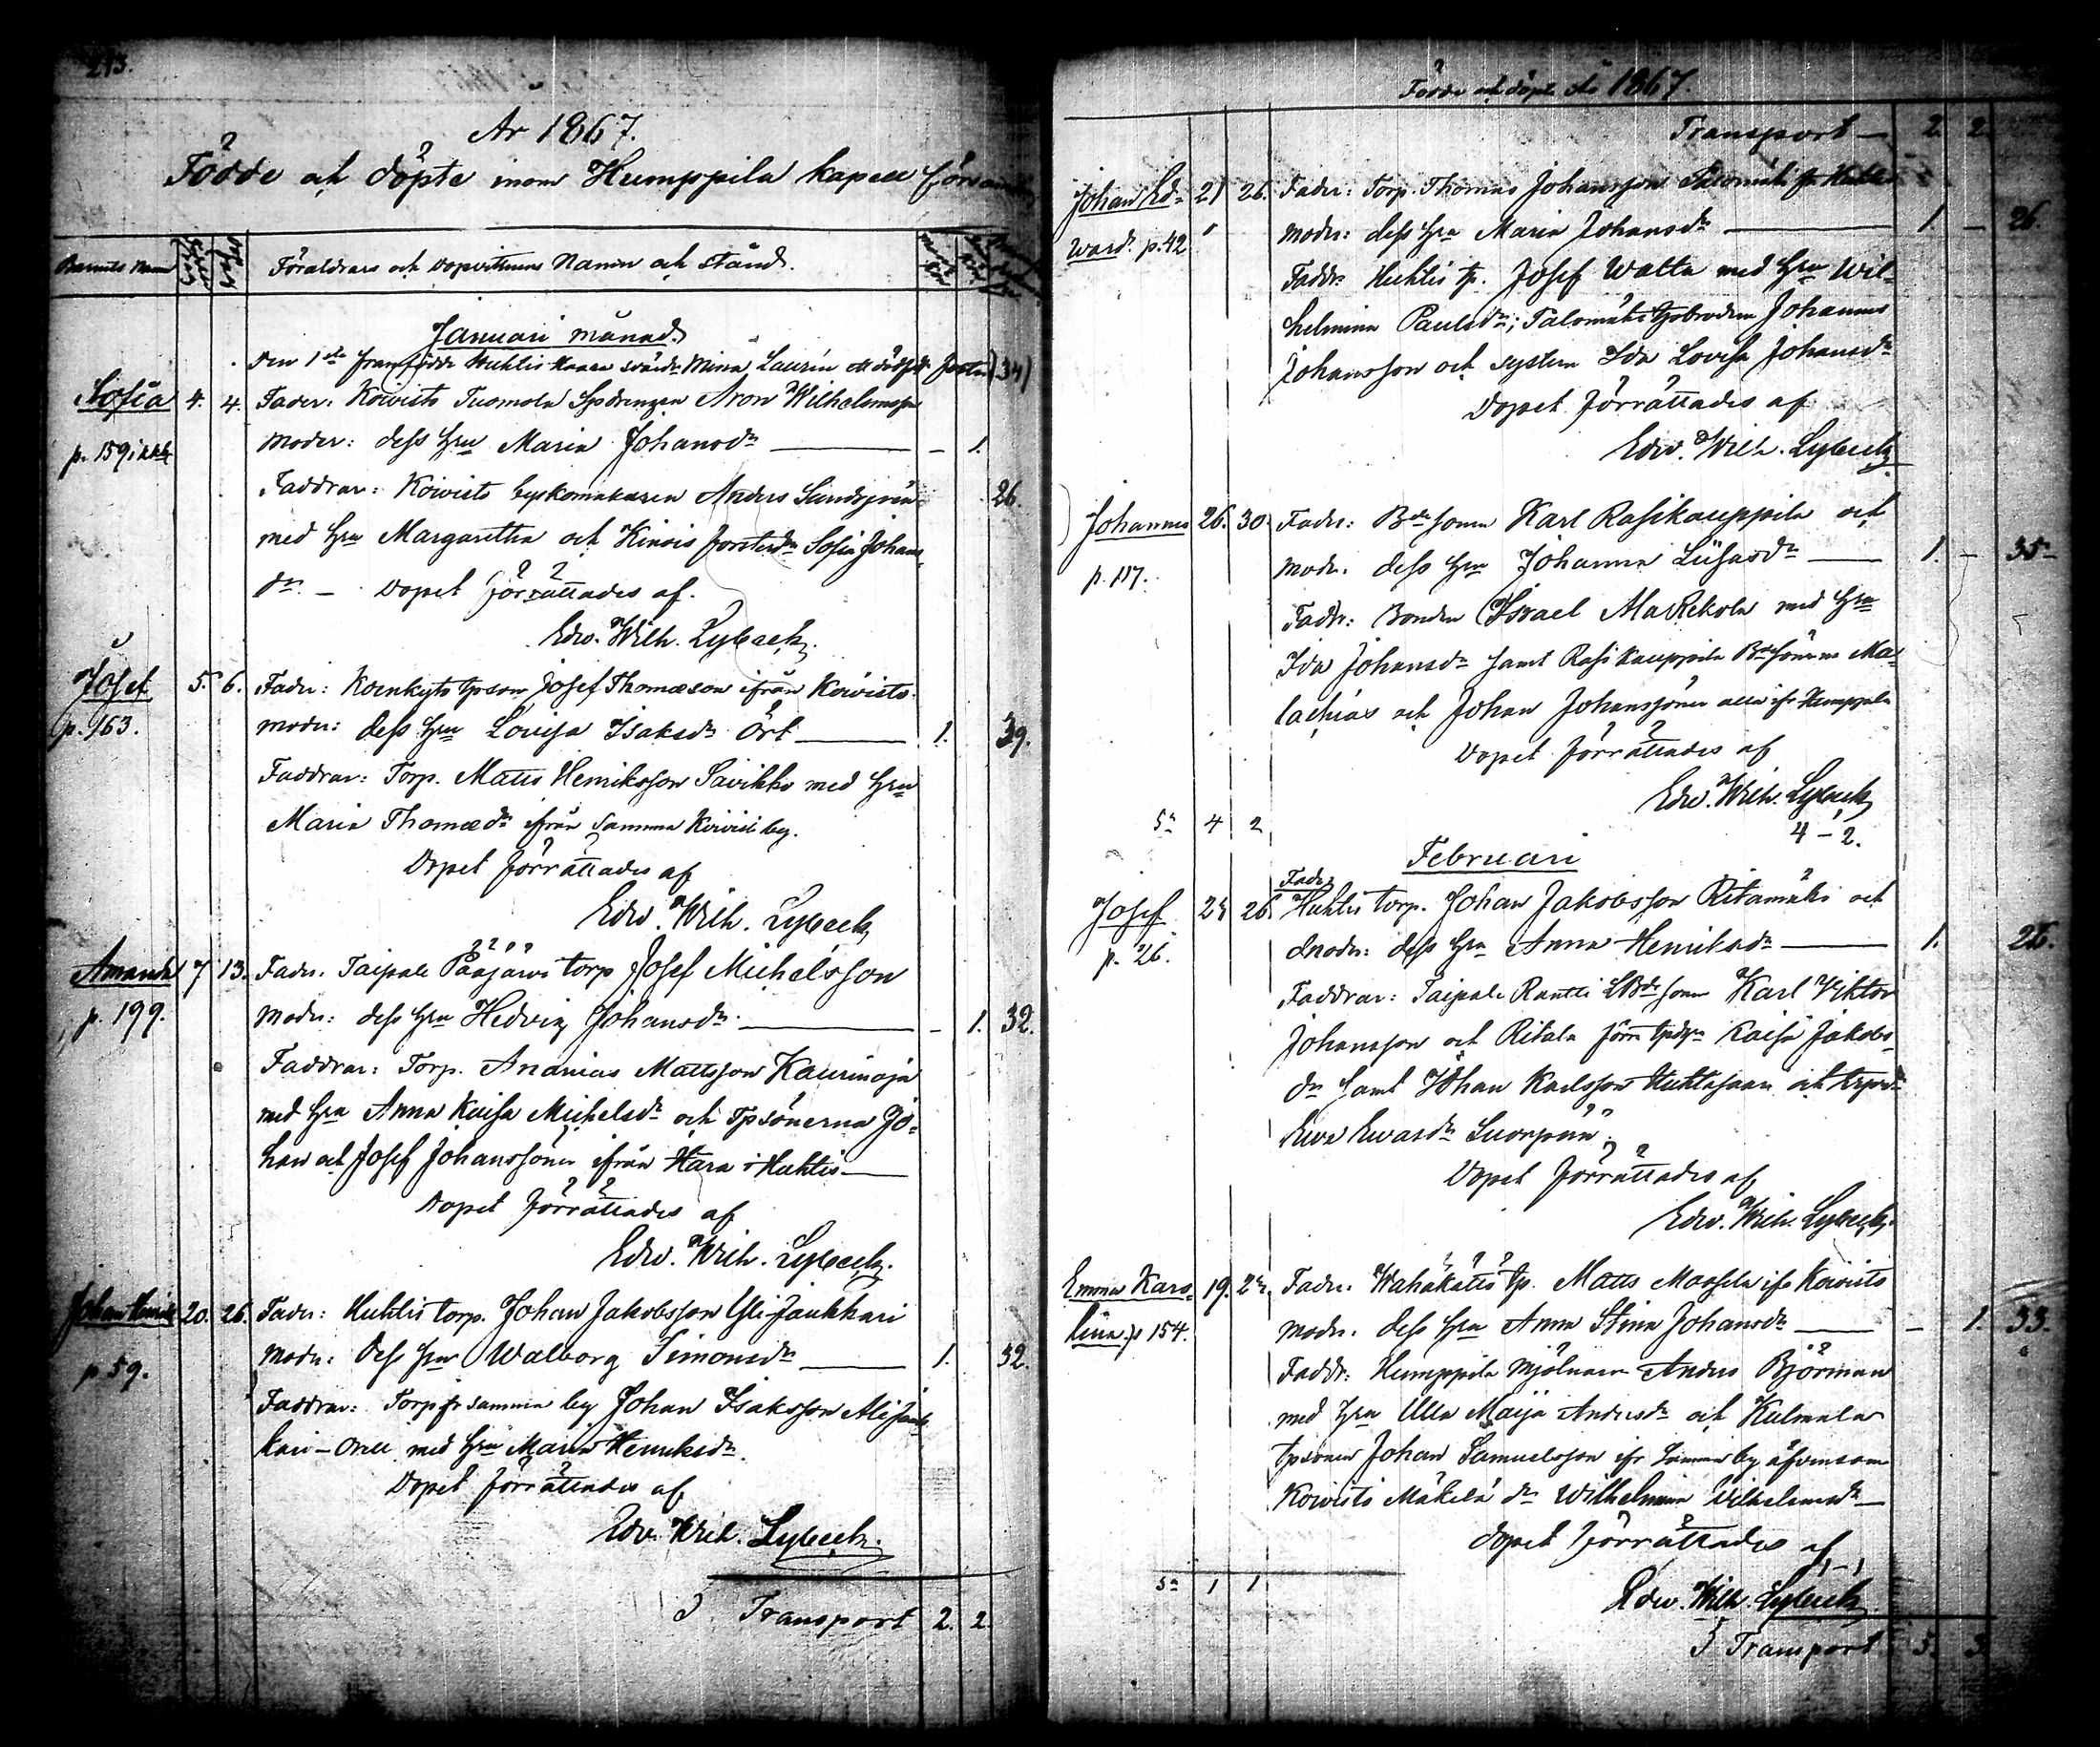 213.
År 1867.
Födde och döpte inom Humppila kapell församl
Barnets Namn
Föräldrars och dopvittnens Namn och stånd.
Januari månad.
Den 1ste framfödde Huhtis Mina Laurin ett dödf. foster (34)
Sofia 4. 4. Fader: Koivisto Tuomola Aron Wilhelmsson
p. 159
Moder: dess Hru Maria Johansdr — 1.
Faddrar: Koivisto byskomakaren Anders 26.
med Hru Margaretha och Sofia Johans
dr. – Dopet förrättades af.
Edw. Wilh. Lybeck.
Josef 5. 6. Fader: tpson Josef Thomasson ifrån Koivisto.
p. 163.
Moder: dess Hru Lovisa Isaksdr Ört 1. 39.
Faddrar: Torp. Matts Henriksson Savikko med Hru
Maria Thomædr ifrån samma Koivisto by.
Dopet förrättades af
Edw. Wilh. Lybeck
Amanda 7 13. Fader. Taipale Pääjärvi torp Josef Michelsson
p. 199.
Moder: dess Hru Hedvig Johansdr. — 1. 32.
Faddrar: Torp. Ananias Mattsson Kaurinoja
med Hru Anna Kaisa Michelsdr och Tpsönerna Jo-
han och Josef Johanssöner ifrån Hara i Huhtis
Dopet förrättades af
Edw. Wilh. Lybeck.
Johan Henrik 20. 26. Fader: Huhtis torp. Johan Jakobsson Yli-Jaukkari
p 59.
Moder: dess Hru Walborg Simonsdr 1. 32.
Faddrar: Torp fr samma by Johan Isaksson Ali Jauk-
kari – Orell med Hru Maria Henriksdr.
Dopet förrättades af
Edw. Wilh. Lybeck.
Transport 2. 2.
Födde och döpte År 1867.
Transport — 2. 2.
Johan Ed- 21 26. Fader: Torp. Thomas Johansson Palomäki fr Huhtis
ward. p. 42
Moder: dess Hru Maria Johansdr 1. — 26.
Faddr: Huhtis tp. Josef Watta med Hru Wil-
helmina Paulsdr; Palomäki tpbrodren Johannes
Johansson och systern Ida Lovisa Johansdr
Dopet förrättades af
Edw. Wilh. Lybeck
Johannes 26. 30. Fader: Bdesonen Karl Rasikauppila och
p. 117.
Moder. dess Hru Johanna Liisasdr 1. – 35
Faddr: Bonden Israel Markkola med Hru
Ida Johansdr samt Rasikauppila Bdesönerne Ma-
lachias och Johan Johanssöner alla ifr Humppila
Dopet förrättades af
Edw. Wilh. Lybeck
4 – 2.
4 2
Februari
Fader
Josef 26. Huhtis torp. Johan Jakobsson Ritamäki och
p. 26.
Moder: dess Hru Anna Henriksdr 1. 26.
Faddrar: Taipale Rantti sonen Karl Viktor
Johansson och Ritala Kaisa Jakobs-
dr samt Johan Karlsson Huhtasaari och
Eva Ewasdr Suonpää.
Dopet förrättades af
Edw. Wilh. Lybeck.
Emma Karo- 19. Fader: Wahäkättö tp. Matts ifr Koivisto
lina. p 154.
Moder: dess Hru Anna Stina Johansdr — 1. 33.
Faddr: Humppila Mjölnaren Anders Björman
med Hru Ulla Maija Andersdr och Kulmala
tpsonen Johan Samuelsson ifr samma by äfvensom
Koivisto Mäkelä dr Wilhelmina Wilhelmsdr
Dopet förrättades af
1 – 1
Edw. Wilh. Lybeck
1 1
Transport 5. 3